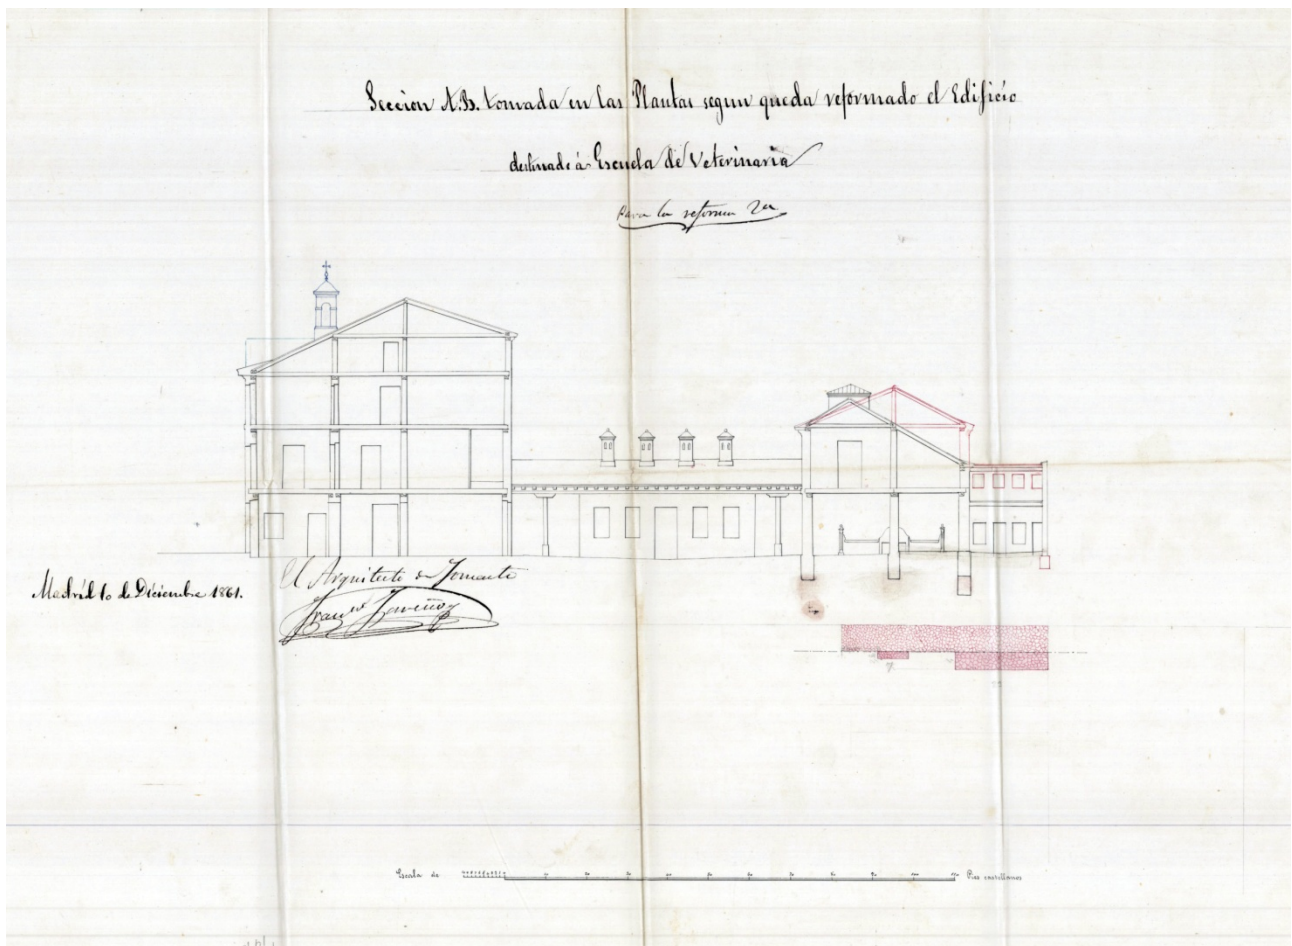 Seccion A.B. tomada en las Plantas segun queda reformado el Edificio
destinado á Escuela de Veterinaria
Para la reforma 2ª
Madrid 10 de Diciembre 1861.
El Arquitecto de Fomento
Escala de
Pies castellanos